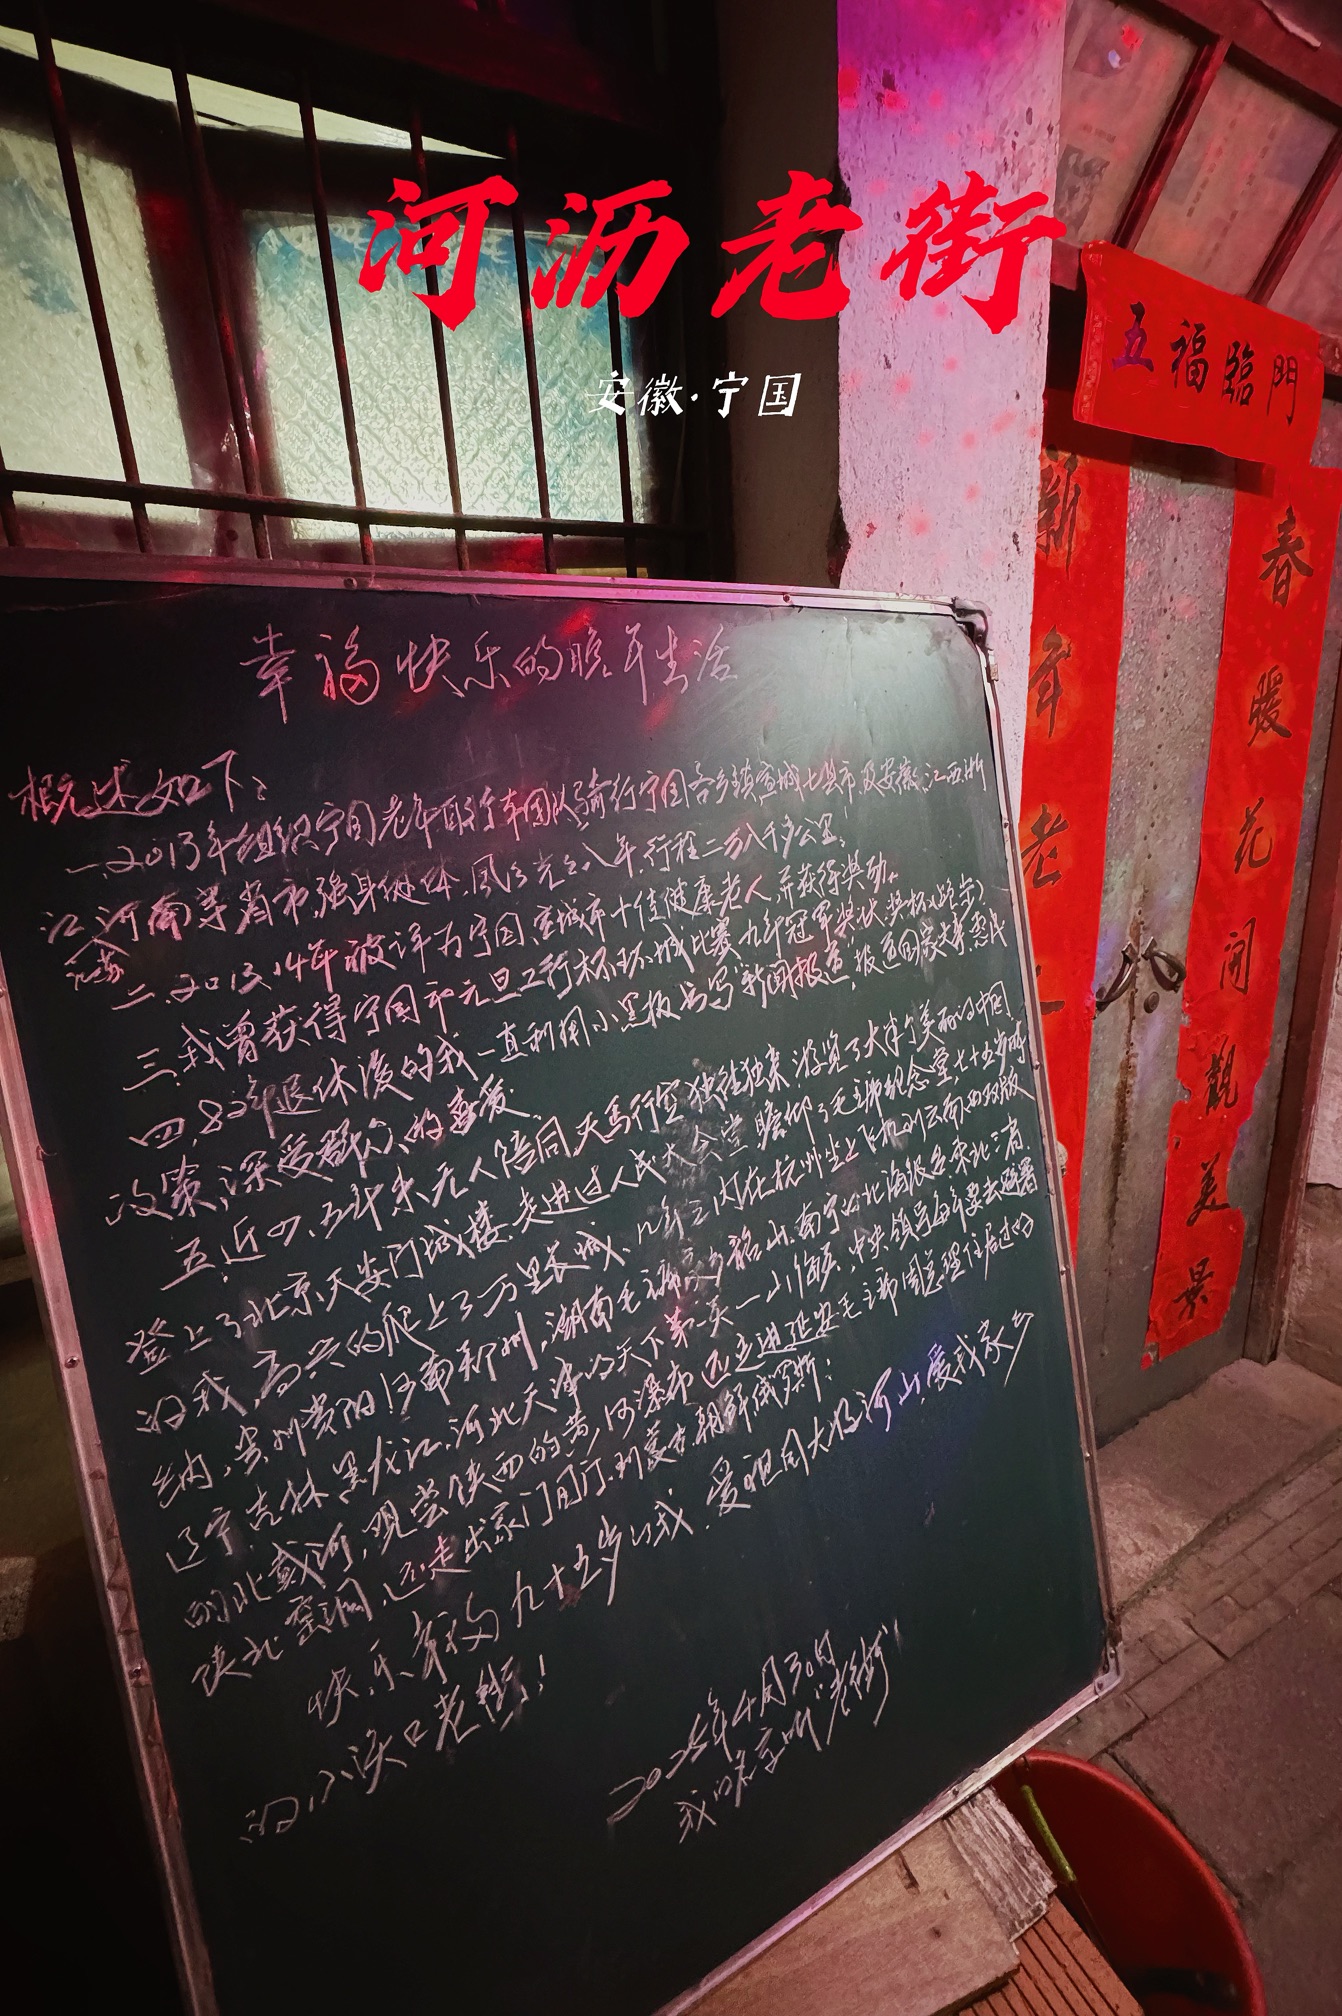 河沥老街
安徽·宁国
五福臨門
新年老
春暖花開觀美景
幸福快乐的晚年生活
概述如下:
一、2013年组织宁国老年自行车团队骑行宁国各乡镇宣城七县市及安徽、江西浙
江河南等省市,强身健体,风风光光八年,行程二万八千多公里;
江苏
二、2013、14年被评为宁国、宣城市十佳健康老人,并获得奖励。
三、我曾获得宁国市元旦工行杯环城比赛九年冠军奖状、奖杯
四、82年退休後的我一直利用小黑板书写"新闻报道",报道国家大事惠民
政策,深受群众的喜爱
五、近四、五年来,无人陪同天马行空独往独来,游览了大半个美丽的中国,
登上了北京天安门城楼,走进过人民大会堂瞻仰了毛主席纪念堂,七十五岁时
的我,高兴的爬上了万里长城,几年之内在杭州坐上飞机到云南西双版
纳,贵州贵阳河南郑州,湖南毛主席家乡韶山、南宁的北海银白东北:满
辽宁吉林黑龙江,河北天津的天下第一关—山海关,中央领导每年要去避暑
的北戴河,观尝陕西的黄河瀑布还走进延安毛主席周总理住过的
陕北窑洞,还走出家门国门,到蒙古、朝鲜俄罗斯;
快乐幸福九十五岁的我,爱祖国大好河山,爱我家乡
的小溪口老街!
2025年4月30日
我的老家叫"老街"